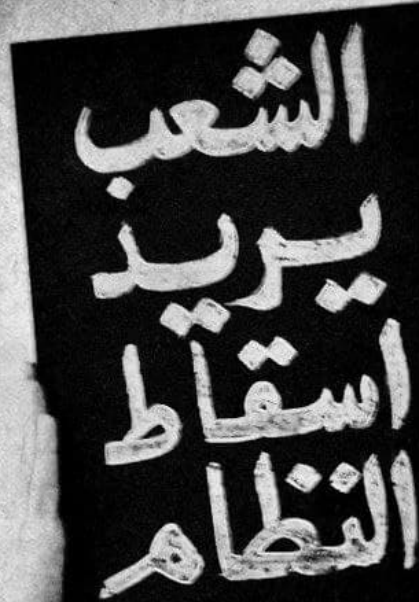 الشعب
يريد
اسقاط
النظام